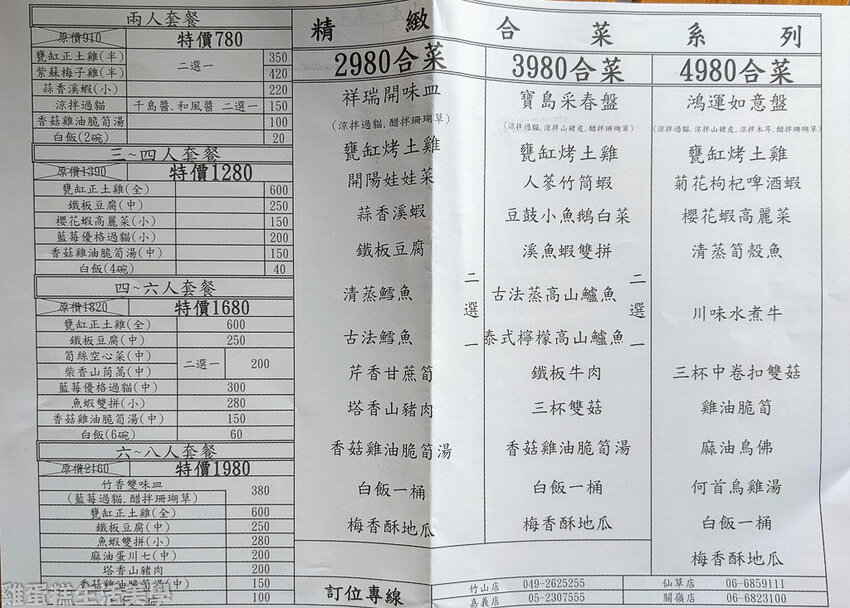 兩人套餐
原價910 特價780
甕缸正土雞(半) 二選一 350
紫蘇梅子雞(半) 420
蒜香溪蝦(小) 220
涼拌過貓 千島醬.和風醬 二選一 150
香菇雞油脆筍湯 100
白飯(2碗) 20
三~四人套餐
原價1390 特價1280
甕缸正土雞(全) 600
鐵板豆腐(中) 250
櫻花蝦高麗菜(小) 150
藍莓優格過貓(小) 200
香菇雞油脆筍湯(中) 150
白飯(4碗) 40
四~六人套餐
原價1820 特價1680
甕缸正土雞(全) 600
鐵板豆腐(中) 250
筍絲空心菜(中) 二選一 200
柴香山茼萵(中)
藍莓優格過貓(中) 300
魚蝦雙拼(小) 280
香菇雞油脆筍湯(中) 150
白飯(6碗) 60
六~八人套餐
原價2160 特價1980
竹香雙味皿 380
(藍莓過貓.醋拌珊瑚草)
甕缸正土雞(全) 600
鐵板豆腐(中) 250
魚蝦雙拼(小) 280
麻油蛋川七(中) 200
塔香山豬肉 200
香菇雞油脆筍湯(中) 150
100
精緻合菜系列
2980合菜
祥瑞開味皿
(涼拌過貓.醋拌珊瑚草)
甕缸烤土雞
開陽娃娃菜
蒜香溪蝦
鐵板豆腐
清蒸鱈魚
二選一
古法鱈魚
芹香甘蔗筍
塔香山豬肉
香菇雞油脆筍湯
白飯一桶
梅香酥地瓜
3980合菜
寶島采春盤
(涼拌過貓.涼拌山豬皮.醋拌珊瑚草)
甕缸烤土雞
人蔘竹筒蝦
豆鼓小魚鵝白菜
溪魚蝦雙拼
古法蒸高山鱸魚
二選一
泰式檸檬高山鱸魚
鐵板牛肉
三杯雙菇
香菇雞油脆筍湯
白飯一桶
梅香酥地瓜
4980合菜
鴻運如意盤
(涼拌過貓.涼拌山豬皮.涼拌木耳.醋拌珊瑚草)
甕缸烤土雞
菊花枸杞啤酒蝦
櫻花蝦高麗菜
清蒸筍殼魚
川味水煮牛
三杯中卷扣雙菇
雞油脆筍
麻油鳥佛
何首烏雞湯
白飯一桶
梅香酥地瓜
訂位專線
竹山店 049-2625255 仙草店 06-6859111
嘉義店 05-2307555 關嶺店 06-6823100
雞蛋糕生活美學